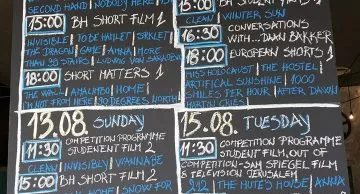 SECOND HAND | NOBODY HERE
15:00 BH SHORT FILM 1
INVISIBLE | TO BE HAILET | SIRKET |
THE DRAGON | GAME | ANNA | MORE
THAN 30 STAIRS | LUDWIG VAN SARAJEVO
18:00 SHORT MATTERS 1
THE WALL | AMALIMBO | HOME |
I'M NOT FROM HERE | 90 DEGREES NORTH
13.08. SUNDAY
11:30 COMPETITION PROGRAMME
STUDENENT FILM 2
CLEAN | INVISIBLY | WANNABE
15:00 BH SHORT FILM 2
HOME | SNOW FOR
15:00 BH STUDENT FILMS
CLEAN | WINTER SUN
16:30 CONVERSATIONS
WITH... DAAN BAKKER
18:00 EUROPEAN SHORTS 1
MISS HOLOCAUST | THE HOSTEL |
ARTIFICIAL SUNSHINE | 1000
SMILES PER HOUR | AFTER DAWN |
MARTIN CRIES
15.08. TUESDAY
11:30 COMPETITION PROGRAMME
STUDENT FILM, OUT OF
COMPETITION - SAM SPIEGEL FILM
& TELEVISION JERUSALEM
212 | THE MUTE'S HOUSE | ANNA